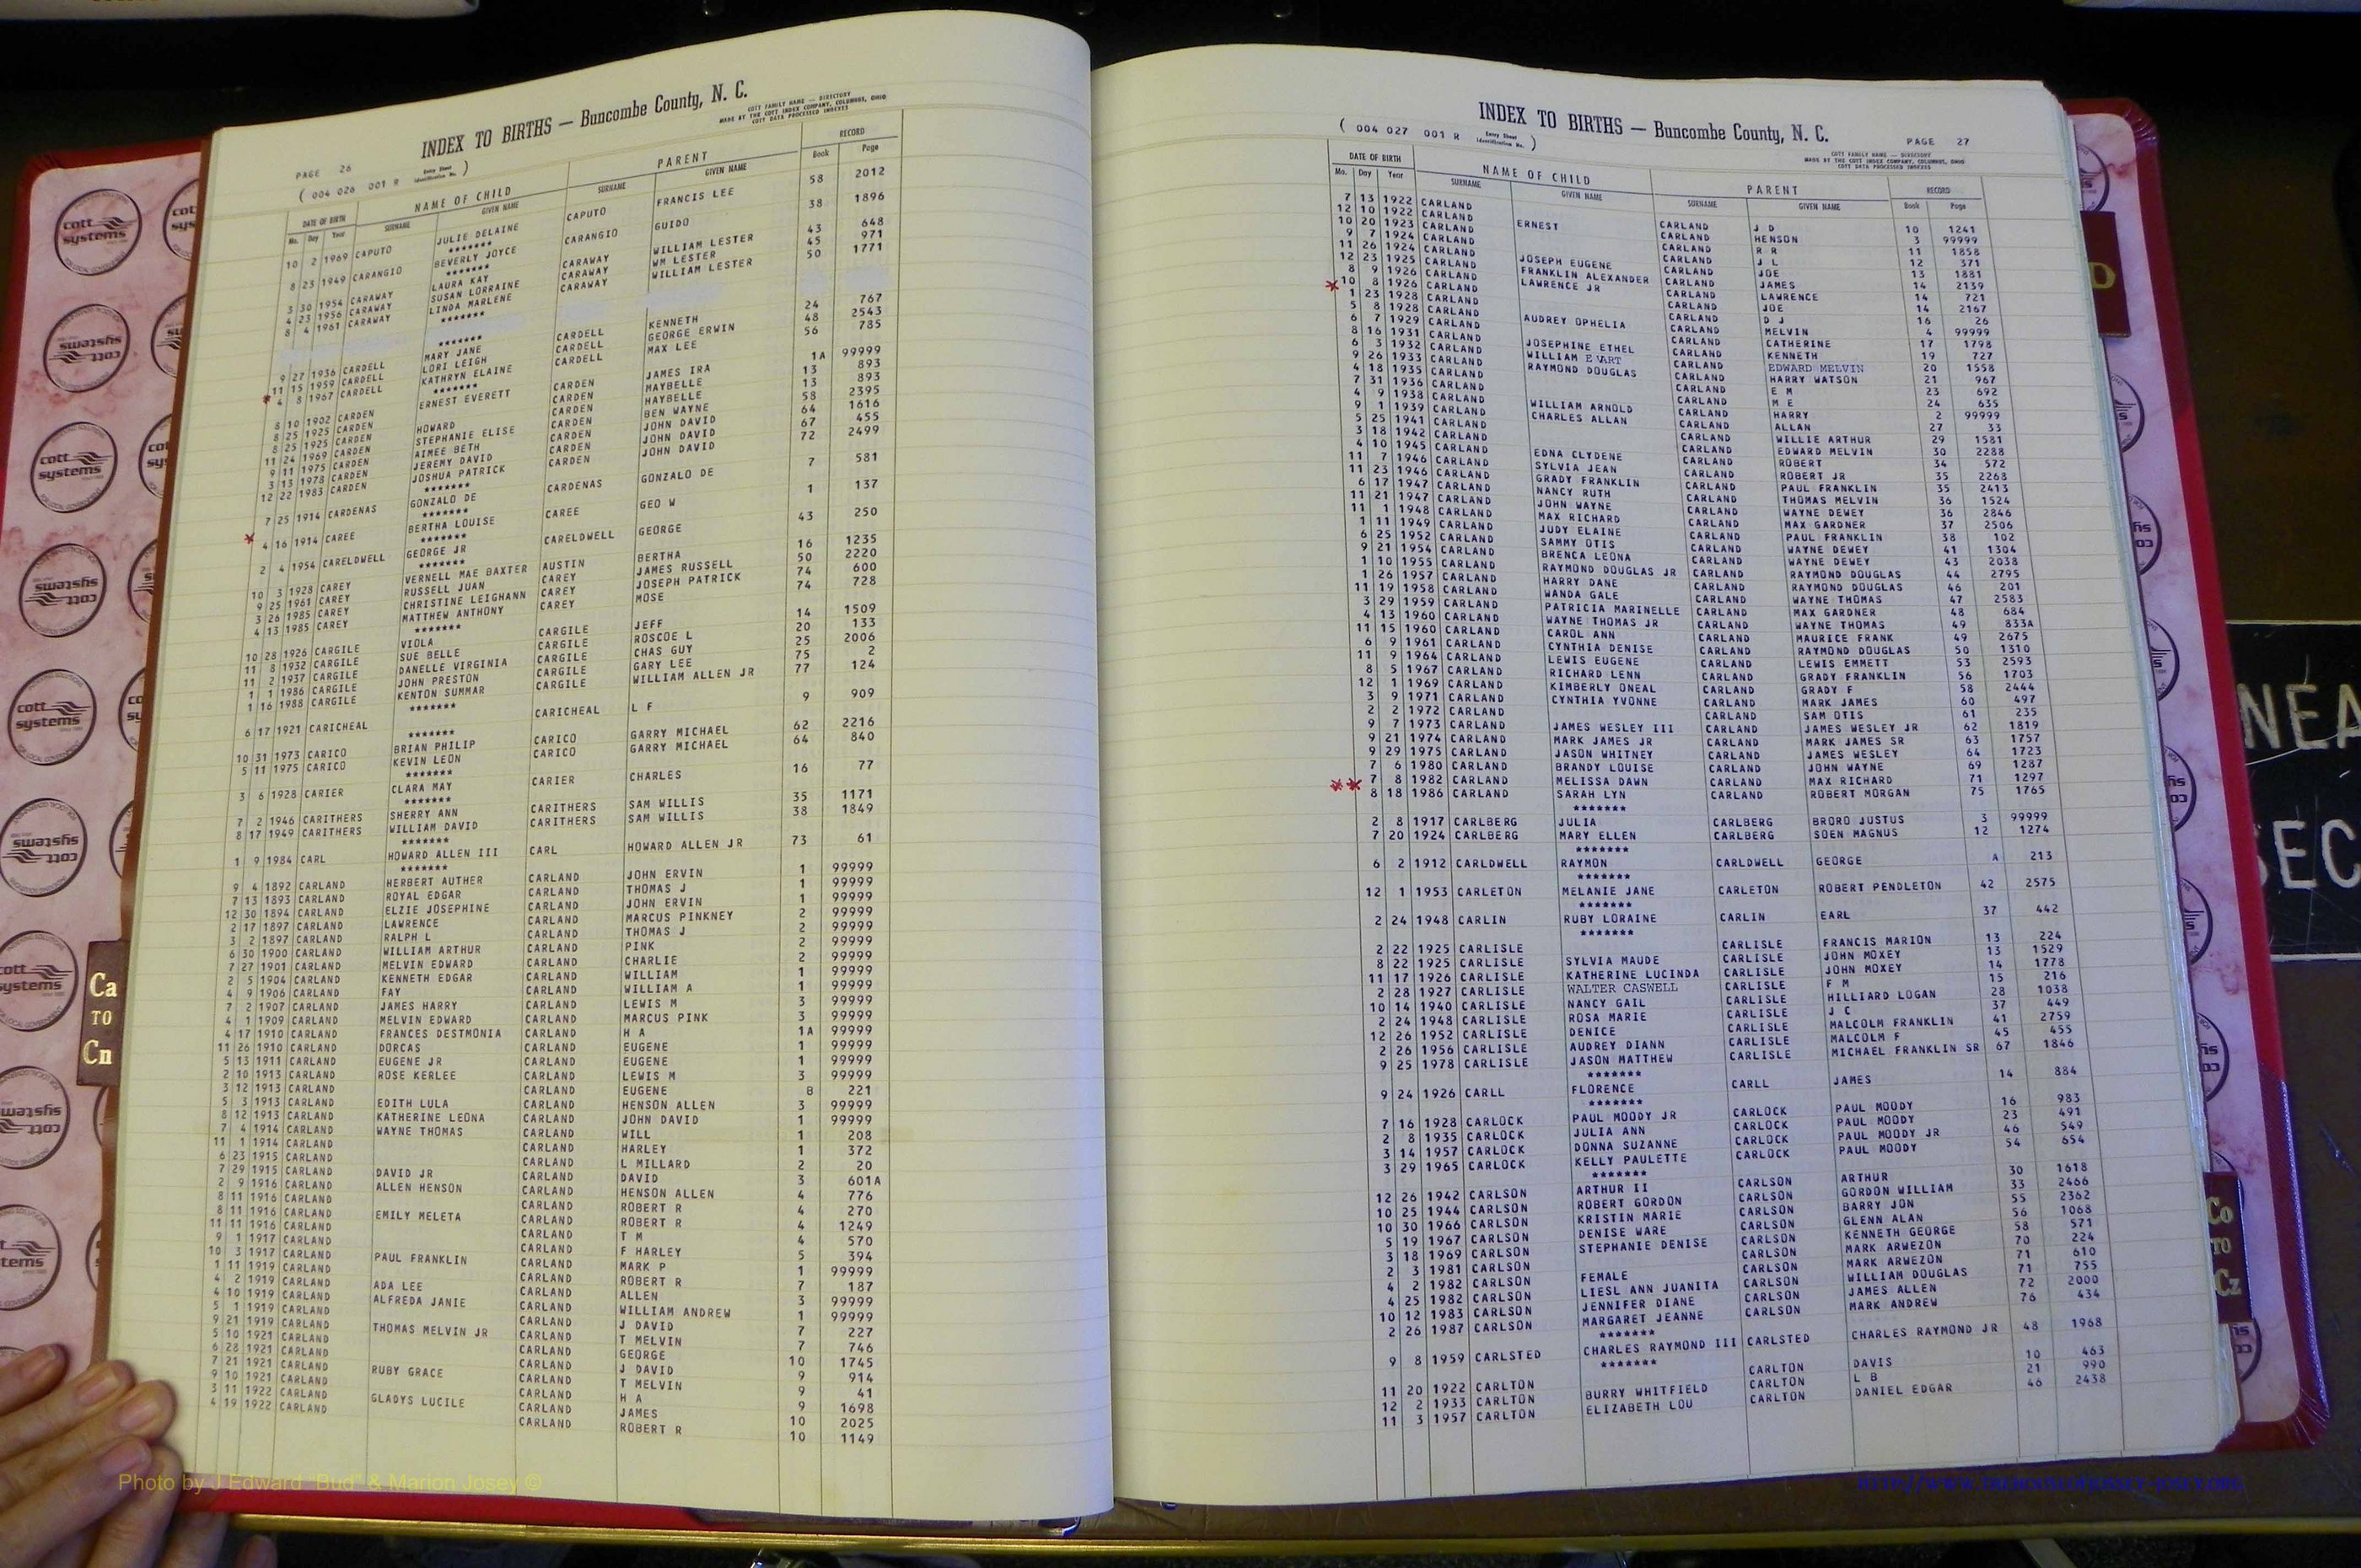 INDEX TO BIRTHS — Buncombe County, N. C.
COTT FAMILY NAME — DIRECTORY
MADE BY THE COTT INDEX COMPANY, COLUMBUS, OHIO
COTT DATA PROCESSED INDEXES
PAGE 26
( 004 026 001 R Entry Sheet Identification No. )
DATE OF BIRTH NAME OF CHILD PARENT RECORD
Mo. Day Year SURNAME GIVEN NAME SURNAME GIVEN NAME Book Page
10 2 1969 CAPUTO JULIE DELAINE CAPUTO FRANCIS LEE 58 2012
*******
8 23 1949 CARANGIO BEVERLY JOYCE CARANGIO GUIDO 38 1896
*******
3 30 1954 CARAWAY LAURA KAY CARAWAY WILLIAM LESTER 43 648
4 23 1956 CARAWAY SUSAN LORRAINE CARAWAY WM LESTER 45 971
8 4 1961 CARAWAY LINDA MARLENE CARAWAY WILLIAM LESTER 50 1771
*******
*******
9 27 1936 CARDELL MARY JANE CARDELL KENNETH 24 767
11 15 1959 CARDELL LORI LEIGH CARDELL GEORGE ERWIN 48 2543
4 8 1967 CARDELL KATHRYN ELAINE CARDELL MAX LEE 56 785
*******
8 10 1902 CARDEN ERNEST EVERETT CARDEN JAMES IRA 1A 99999
8 25 1925 CARDEN CARDEN MAYBELLE 13 893
8 25 1925 CARDEN HOWARD CARDEN HAYBELLE 13 893
11 24 1969 CARDEN STEPHANIE ELISE CARDEN BEN WAYNE 58 2395
9 11 1975 CARDEN AIMEE BETH CARDEN JOHN DAVID 64 1616
3 13 1978 CARDEN JEREMY DAVID CARDEN JOHN DAVID 67 455
12 22 1983 CARDEN JOSHUA PATRICK CARDEN JOHN DAVID 72 2499
*******
7 25 1914 CARDENAS GONZALO DE CARDENAS GONZALO DE 7 581
*******
4 16 1914 CAREE BERTHA LOUISE CAREE GEO W 1 137
*******
2 4 1954 CARELDWELL GEORGE JR CARELDWELL GEORGE 43 250
*******
10 3 1928 CAREY VERNELL MAE BAXTER AUSTIN BERTHA 16 1235
9 25 1961 CAREY RUSSELL JUAN CAREY JAMES RUSSELL 50 2220
3 26 1985 CAREY CHRISTINE LEIGHANN CAREY JOSEPH PATRICK 74 600
4 13 1985 CAREY MATTHEW ANTHONY CAREY MOSE 74 728
*******
10 28 1926 CARGILE VIOLA CARGILE JEFF 14 1509
11 8 1932 CARGILE SUE BELLE CARGILE ROSCOE L 20 133
11 2 1937 CARGILE DANELLE VIRGINIA CARGILE CHAS GUY 25 2006
1 1 1986 CARGILE JOHN PRESTON CARGILE GARY LEE 75 2
1 16 1988 CARGILE KENTON SUMMAR CARGILE WILLIAM ALLEN JR 77 124
*******
6 17 1921 CARICHEAL CARICHEAL L F 9 909
*******
10 31 1973 CARICO BRIAN PHILIP CARICO GARRY MICHAEL 62 2216
5 11 1975 CARICO KEVIN LEON CARICO GARRY MICHAEL 64 840
*******
3 6 1928 CARIER CLARA MAY CARIER CHARLES 16 77
*******
7 2 1946 CARITHERS SHERRY ANN CARITHERS SAM WILLIS 35 1171
8 17 1949 CARITHERS WILLIAM DAVID CARITHERS SAM WILLIS 38 1849
*******
1 9 1984 CARL HOWARD ALLEN III CARL HOWARD ALLEN JR 73 61
*******
9 4 1892 CARLAND HERBERT AUTHER CARLAND JOHN ERVIN 1 99999
7 13 1893 CARLAND ROYAL EDGAR CARLAND THOMAS J 1 99999
12 30 1894 CARLAND ELZIE JOSEPHINE CARLAND JOHN ERVIN 1 99999
2 17 1897 CARLAND LAWRENCE CARLAND MARCUS PINKNEY 2 99999
3 2 1897 CARLAND RALPH L CARLAND THOMAS J 2 99999
6 30 1900 CARLAND WILLIAM ARTHUR CARLAND PINK 2 99999
7 27 1901 CARLAND MELVIN EDWARD CARLAND CHARLIE 2 99999
2 5 1904 CARLAND KENNETH EDGAR CARLAND WILLIAM 1 99999
4 9 1906 CARLAND FAY CARLAND WILLIAM A 1 99999
7 2 1907 CARLAND JAMES HARRY CARLAND LEWIS M 3 99999
4 1 1909 CARLAND MELVIN EDWARD CARLAND MARCUS PINK 3 99999
4 17 1910 CARLAND FRANCES DESTMONIA CARLAND H A 1A 99999
11 26 1910 CARLAND DORCAS CARLAND EUGENE 1 99999
5 13 1911 CARLAND EUGENE JR CARLAND EUGENE 1 99999
2 10 1913 CARLAND ROSE KERLEE CARLAND LEWIS M 3 99999
3 12 1913 CARLAND CARLAND EUGENE B 221
5 3 1913 CARLAND EDITH LULA CARLAND HENSON ALLEN 3 99999
8 12 1913 CARLAND KATHERINE LEONA CARLAND JOHN DAVID 1 99999
7 4 1914 CARLAND WAYNE THOMAS CARLAND WILL 1 208
11 1 1914 CARLAND CARLAND HARLEY 1 372
6 23 1915 CARLAND CARLAND L MILLARD 2 20
7 29 1915 CARLAND DAVID JR CARLAND DAVID 3 601A
2 9 1916 CARLAND ALLEN HENSON CARLAND HENSON ALLEN 4 776
8 11 1916 CARLAND CARLAND ROBERT R 4 270
8 11 1916 CARLAND EMILY MELETA CARLAND ROBERT R 4 1249
11 11 1916 CARLAND CARLAND T M 4 570
9 1 1917 CARLAND CARLAND F HARLEY 5 394
10 3 1917 CARLAND PAUL FRANKLIN CARLAND MARK P 1 99999
1 11 1919 CARLAND CARLAND ROBERT R 7 187
4 2 1919 CARLAND ADA LEE CARLAND ALLEN 3 99999
4 10 1919 CARLAND ALFREDA JANIE CARLAND WILLIAM ANDREW 1 99999
5 1 1919 CARLAND CARLAND J DAVID 7 227
9 21 1919 CARLAND THOMAS MELVIN JR CARLAND T MELVIN 7 746
5 10 1921 CARLAND CARLAND GEORGE 10 1745
6 28 1921 CARLAND CARLAND J DAVID 9 914
7 21 1921 CARLAND RUBY GRACE CARLAND T MELVIN 9 41
9 10 1921 CARLAND CARLAND H A 9 1698
3 11 1922 CARLAND GLADYS LUCILE CARLAND JAMES 10 2025
4 19 1922 CARLAND CARLAND ROBERT R 10 1149
INDEX TO BIRTHS — Buncombe County, N. C.
( 004 027 001 R Entry Sheet Identification No. )
PAGE 27
COTT FAMILY NAME — DIRECTORY
MADE BY THE COTT INDEX COMPANY, COLUMBUS, OHIO
COTT DATA PROCESSED INDEXES
DATE OF BIRTH NAME OF CHILD PARENT RECORD
Mo. Day Year SURNAME GIVEN NAME SURNAME GIVEN NAME Book Page
7 13 1922 CARLAND CARLAND J D 10 1241
12 10 1922 CARLAND ERNEST CARLAND HENSON 3 99999
10 20 1923 CARLAND CARLAND R R 11 1858
9 7 1924 CARLAND CARLAND J L 12 371
11 26 1924 CARLAND JOSEPH EUGENE CARLAND JOE 13 1881
12 23 1925 CARLAND FRANKLIN ALEXANDER CARLAND JAMES 14 2139
8 9 1926 CARLAND LAWRENCE JR CARLAND LAWRENCE 14 721
10 8 1926 CARLAND CARLAND JOE 14 2167
1 23 1928 CARLAND CARLAND D J 16 26
5 8 1928 CARLAND AUDREY OPHELIA CARLAND MELVIN 4 99999
6 7 1929 CARLAND CARLAND CATHERINE 17 1798
8 16 1931 CARLAND JOSEPHINE ETHEL CARLAND KENNETH 19 727
6 3 1932 CARLAND WILLIAM EVART CARLAND EDWARD MELVIN 20 1558
9 26 1933 CARLAND RAYMOND DOUGLAS CARLAND HARRY WATSON 21 967
4 18 1935 CARLAND CARLAND E M 23 692
7 31 1936 CARLAND CARLAND M E 24 635
4 9 1938 CARLAND WILLIAM ARNOLD CARLAND HARRY 2 99999
9 1 1939 CARLAND CHARLES ALLAN CARLAND ALLAN 27 33
5 25 1941 CARLAND CARLAND WILLIE ARTHUR 29 1581
3 18 1942 CARLAND CARLAND EDWARD MELVIN 30 2288
4 10 1945 CARLAND EDNA CLYDENE CARLAND ROBERT 34 572
11 7 1946 CARLAND SYLVIA JEAN CARLAND ROBERT JR 35 2268
11 23 1946 CARLAND GRADY FRANKLIN CARLAND PAUL FRANKLIN 35 2413
6 17 1947 CARLAND NANCY RUTH CARLAND THOMAS MELVIN 36 1524
11 21 1947 CARLAND JOHN WAYNE CARLAND WAYNE DEWEY 36 2846
11 1 1948 CARLAND MAX RICHARD CARLAND MAX GARDNER 37 2506
1 11 1949 CARLAND JUDY ELAINE CARLAND PAUL FRANKLIN 38 102
6 25 1952 CARLAND SAMMY OTIS CARLAND WAYNE DEWEY 41 1304
9 21 1954 CARLAND BRENCA LEONA CARLAND WAYNE DEWEY 43 2038
1 10 1955 CARLAND RAYMOND DOUGLAS JR CARLAND RAYMOND DOUGLAS 44 2795
1 26 1957 CARLAND HARRY DANE CARLAND RAYMOND DOUGLAS 46 201
11 19 1958 CARLAND WANDA GALE CARLAND WAYNE THOMAS 47 2583
3 29 1959 CARLAND PATRICIA MARINELLE CARLAND MAX GARDNER 48 684
4 13 1960 CARLAND WAYNE THOMAS JR CARLAND WAYNE THOMAS 49 833A
11 15 1960 CARLAND CAROL ANN CARLAND MAURICE FRANK 49 2675
6 9 1961 CARLAND CYNTHIA DENISE CARLAND RAYMOND DOUGLAS 50 1310
11 9 1964 CARLAND LEWIS EUGENE CARLAND LEWIS EMMETT 53 2593
8 5 1967 CARLAND RICHARD LENN CARLAND GRADY FRANKLIN 56 1703
12 1 1969 CARLAND KIMBERLY ONEAL CARLAND GRADY F 58 2444
3 9 1971 CARLAND CYNTHIA YVONNE CARLAND MARK JAMES 60 497
2 2 1972 CARLAND CARLAND SAM OTIS 61 235
9 7 1973 CARLAND JAMES WESLEY III CARLAND JAMES WESLEY JR 62 1819
9 21 1974 CARLAND MARK JAMES JR CARLAND MARK JAMES SR 63 1757
9 29 1975 CARLAND JASON WHITNEY CARLAND JAMES WESLEY 64 1723
7 6 1980 CARLAND BRANDY LOUISE CARLAND JOHN WAYNE 69 1287
7 8 1982 CARLAND MELISSA DAWN CARLAND MAX RICHARD 71 1297
8 18 1986 CARLAND SARAH LYN CARLAND ROBERT MORGAN 75 1765
*******
2 8 1917 CARLBERG JULIA CARLBERG BRORO JUSTUS 3 99999
7 20 1924 CARLBERG MARY ELLEN CARLBERG SOEN MAGNUS 12 1274
*******
6 2 1912 CARLDWELL RAYMON CARLDWELL GEORGE A 213
*******
12 1 1953 CARLETON MELANIE JANE CARLETON ROBERT PENDLETON 42 2575
*******
2 24 1948 CARLIN RUBY LORAINE CARLIN EARL 37 442
*******
2 22 1925 CARLISLE CARLISLE FRANCIS MARION 13 224
8 22 1925 CARLISLE SYLVIA MAUDE CARLISLE JOHN MOXEY 13 1529
11 17 1926 CARLISLE KATHERINE LUCINDA CARLISLE JOHN MOXEY 14 1778
2 28 1927 CARLISLE WALTER CASWELL CARLISLE F M 15 216
10 14 1940 CARLISLE NANCY GAIL CARLISLE HILLIARD LOGAN 28 1038
2 24 1948 CARLISLE ROSA MARIE CARLISLE J C 37 449
12 26 1952 CARLISLE DENICE CARLISLE MALCOLM FRANKLIN 41 2759
2 26 1956 CARLISLE AUDREY DIANN CARLISLE MALCOLM F 45 455
9 25 1978 CARLISLE JASON MATTHEW CARLISLE MICHAEL FRANKLIN SR 67 1846
*******
9 24 1926 CARLL FLORENCE CARLL JAMES 14 884
*******
7 16 1928 CARLOCK PAUL MOODY JR CARLOCK PAUL MOODY 16 983
2 8 1935 CARLOCK JULIA ANN CARLOCK PAUL MOODY 23 491
3 14 1957 CARLOCK DONNA SUZANNE CARLOCK PAUL MOODY JR 46 549
3 29 1965 CARLOCK KELLY PAULETTE CARLOCK PAUL MOODY 54 654
*******
12 26 1942 CARLSON ARTHUR II CARLSON ARTHUR 30 1618
10 25 1944 CARLSON ROBERT GORDON CARLSON GORDON WILLIAM 33 2466
10 30 1966 CARLSON KRISTIN MARIE CARLSON BARRY JON 55 2362
5 19 1967 CARLSON DENISE WARE CARLSON GLENN ALAN 56 1068
3 18 1969 CARLSON STEPHANIE DENISE CARLSON KENNETH GEORGE 58 571
2 3 1981 CARLSON CARLSON MARK ARWEZON 70 224
4 2 1982 CARLSON FEMALE CARLSON MARK ARWEZON 71 610
4 25 1982 CARLSON LIESL ANN JUANITA CARLSON WILLIAM DOUGLAS 71 755
10 12 1983 CARLSON JENNIFER DIANE CARLSON JAMES ALLEN 72 2000
2 26 1987 CARLSON MARGARET JEANNE CARLSON MARK ANDREW 76 434
*******
9 8 1959 CARLSTED CHARLES RAYMOND III CARLSTED CHARLES RAYMOND JR 48 1968
*******
11 20 1922 CARLTON CARLTON DAVIS 10 463
12 2 1933 CARLTON BURRY WHITFIELD CARLTON L B 21 990
11 3 1957 CARLTON ELIZABETH LOU CARLTON DANIEL EDGAR 46 2438
cott systems
Ca
TO
Cn
Co
TO
Cz
D
NEA
SEC
Photo by J Edward "Bud" & Marion Josey ©
HTTP://WWW.THEHOUSEOFJOSSEY-JOSEY.ORG